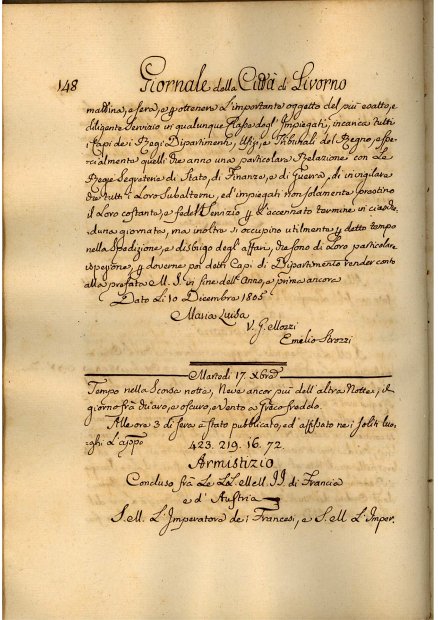 148 Giornale della Città di Livorno
mattina, e sera, e p ottenere L'importante oggetto del più esatto, e
diligente Servizio in qualunque Classe degl' Impiegati, incarica tutti
i Capi de i Regi Dipartimenti, Ufizi, e Tribunali del Regno, e spe-
cialmente quelli che anno una particolare Relazione con Le
Regie Segreterie di Stato, di Finanze, e di Guerra, di invigilare
che tutti i Loro Subalterni, ed' impiegati non solamente prestino
il Loro costante, e fedel Servizio p L'accennato termine in ciasche-
duna giornata, ma inoltre si occupino utilmente p detto tempo
nella Spedizione, e disbrigo degl' affari, che sono di Loro particolare
ispezione, p dovere poi detti Capi di Dipartimento render conto
alla prefata M. S. in fine dell' Anno, e prima ancora
Dato Li 10 Dicembre 1805
Maria Luisa
V. G. Mozzi
Emelio Strozzi
Martedi 17. Xbre
Tempo nella Scorsa notte, Neve ancor più dell' altra Notte; il
giorno frà chiaro, e oscuro, e Vento a Greco freddo.
Alle ore 3 di Sera è stato pubblicato, ed' affissato nei soliti luo-
ghi L'appo
423. 219. 16. 72.
Armistizio
Concluso frà Le LL. MM. II. di Francia
e d' Austria
S. M. L' Imperatore de i Francesi, e S. M. L' Imper.